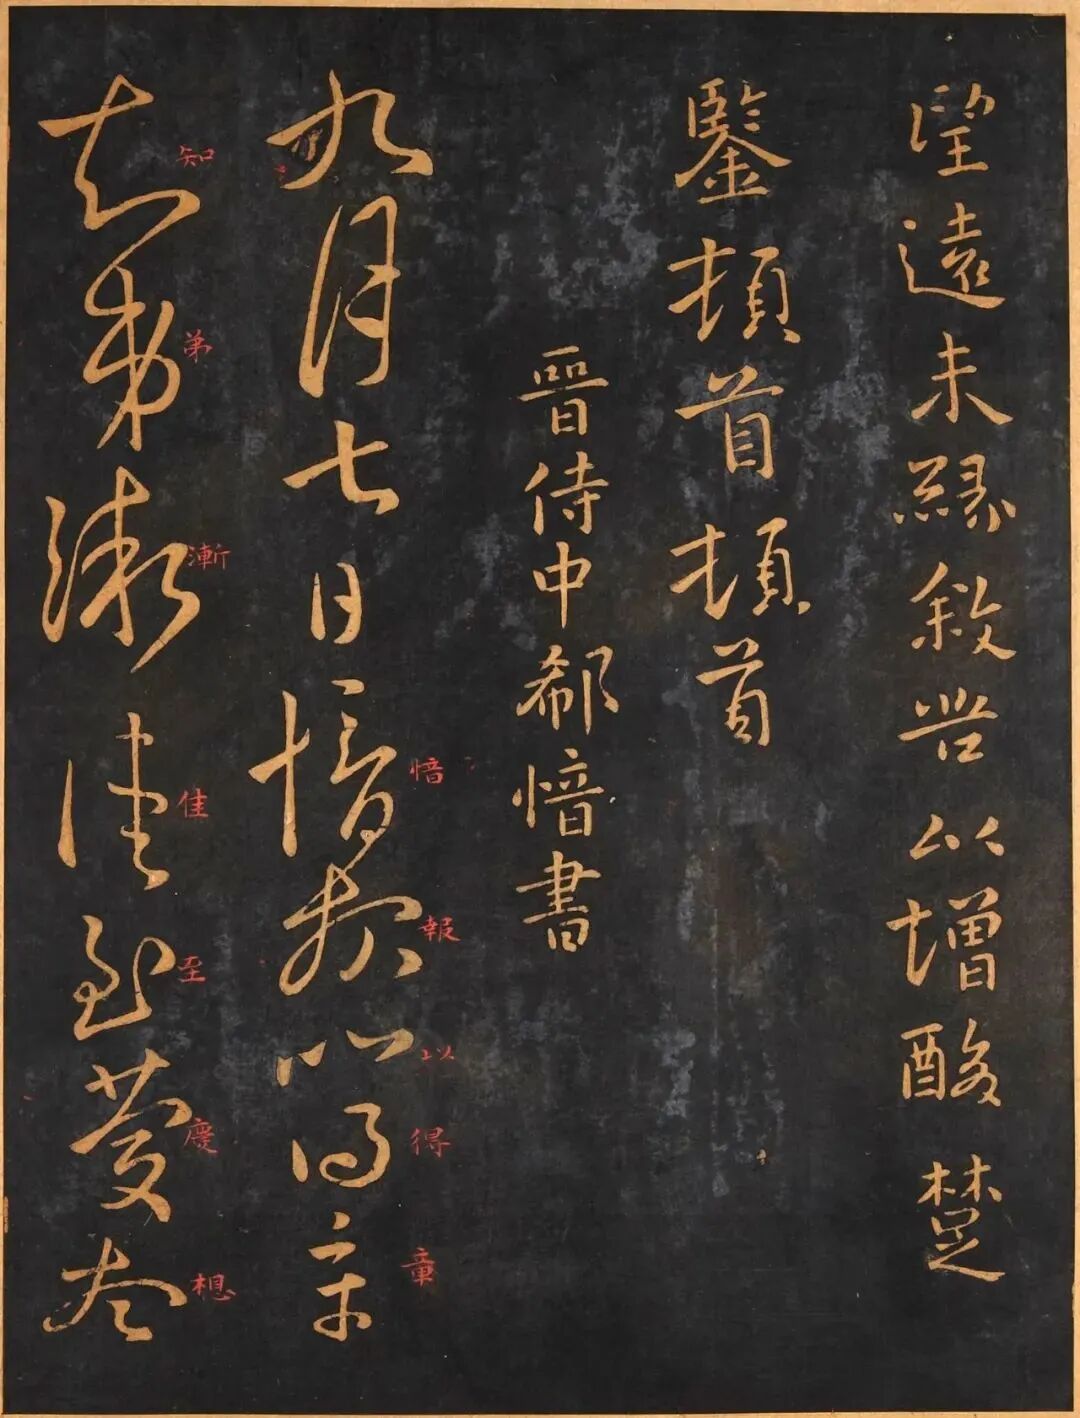 望遠未緣敘苦以增酸楚
鑒頓首頓首
晉侍中郗愔書
九月七日愔報以得章
愔報以得章
知弟漸佳至慶想
知弟漸佳至慶想